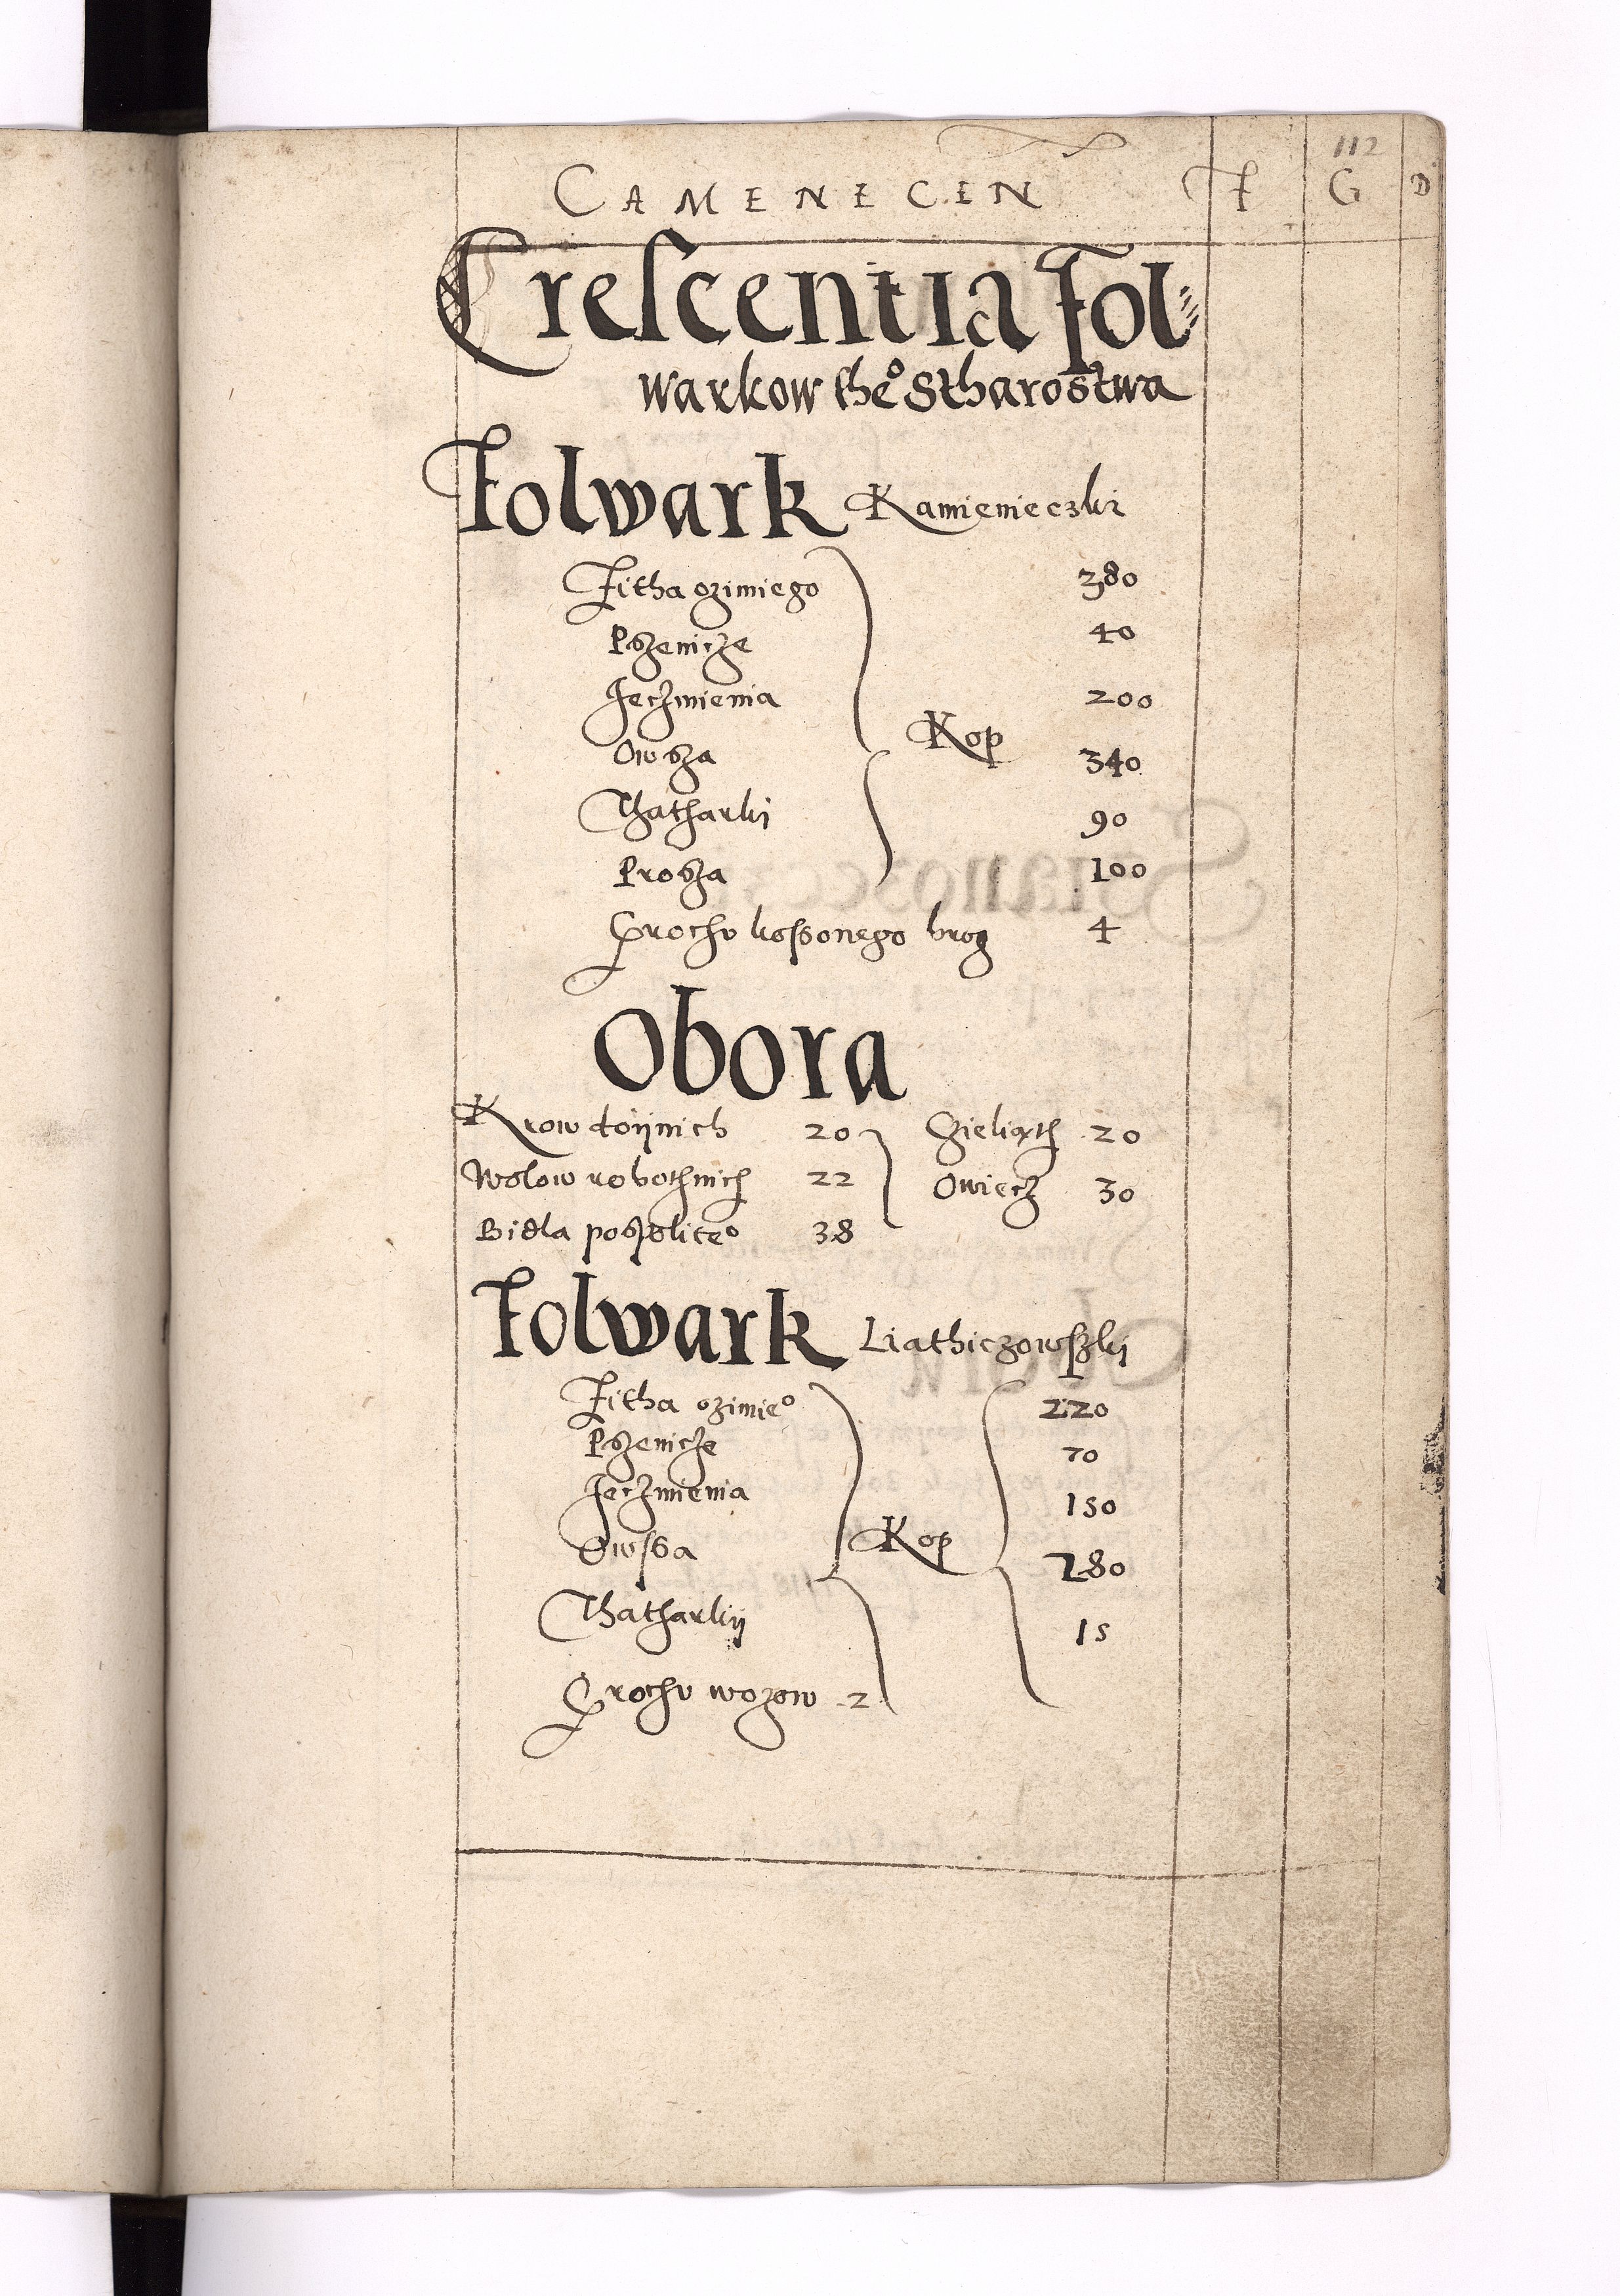 112
CAMENECEN F G D
Crescentia Fol⸗
warkow theº Stharostwa
Folwark Kamienieczki
Zitha ozimiego 380
Pszenicze 40
Jeczmienia 200
Owsza Kop 340
Thatharki 90
Prosza 100
Grochu kossonego brog 4
Obora
Krow doijnich 20 Czieliąth 20
Wolow robothnich 22 Owiecz 30
Bidla pospoliteº 38
Folwark Liathiczowszkij
Zitha ozimieº 220
Pszenicze 70
Jeczmienia 150
Owssa Kop 280
Thatharkij 15
Grochu wozow 2